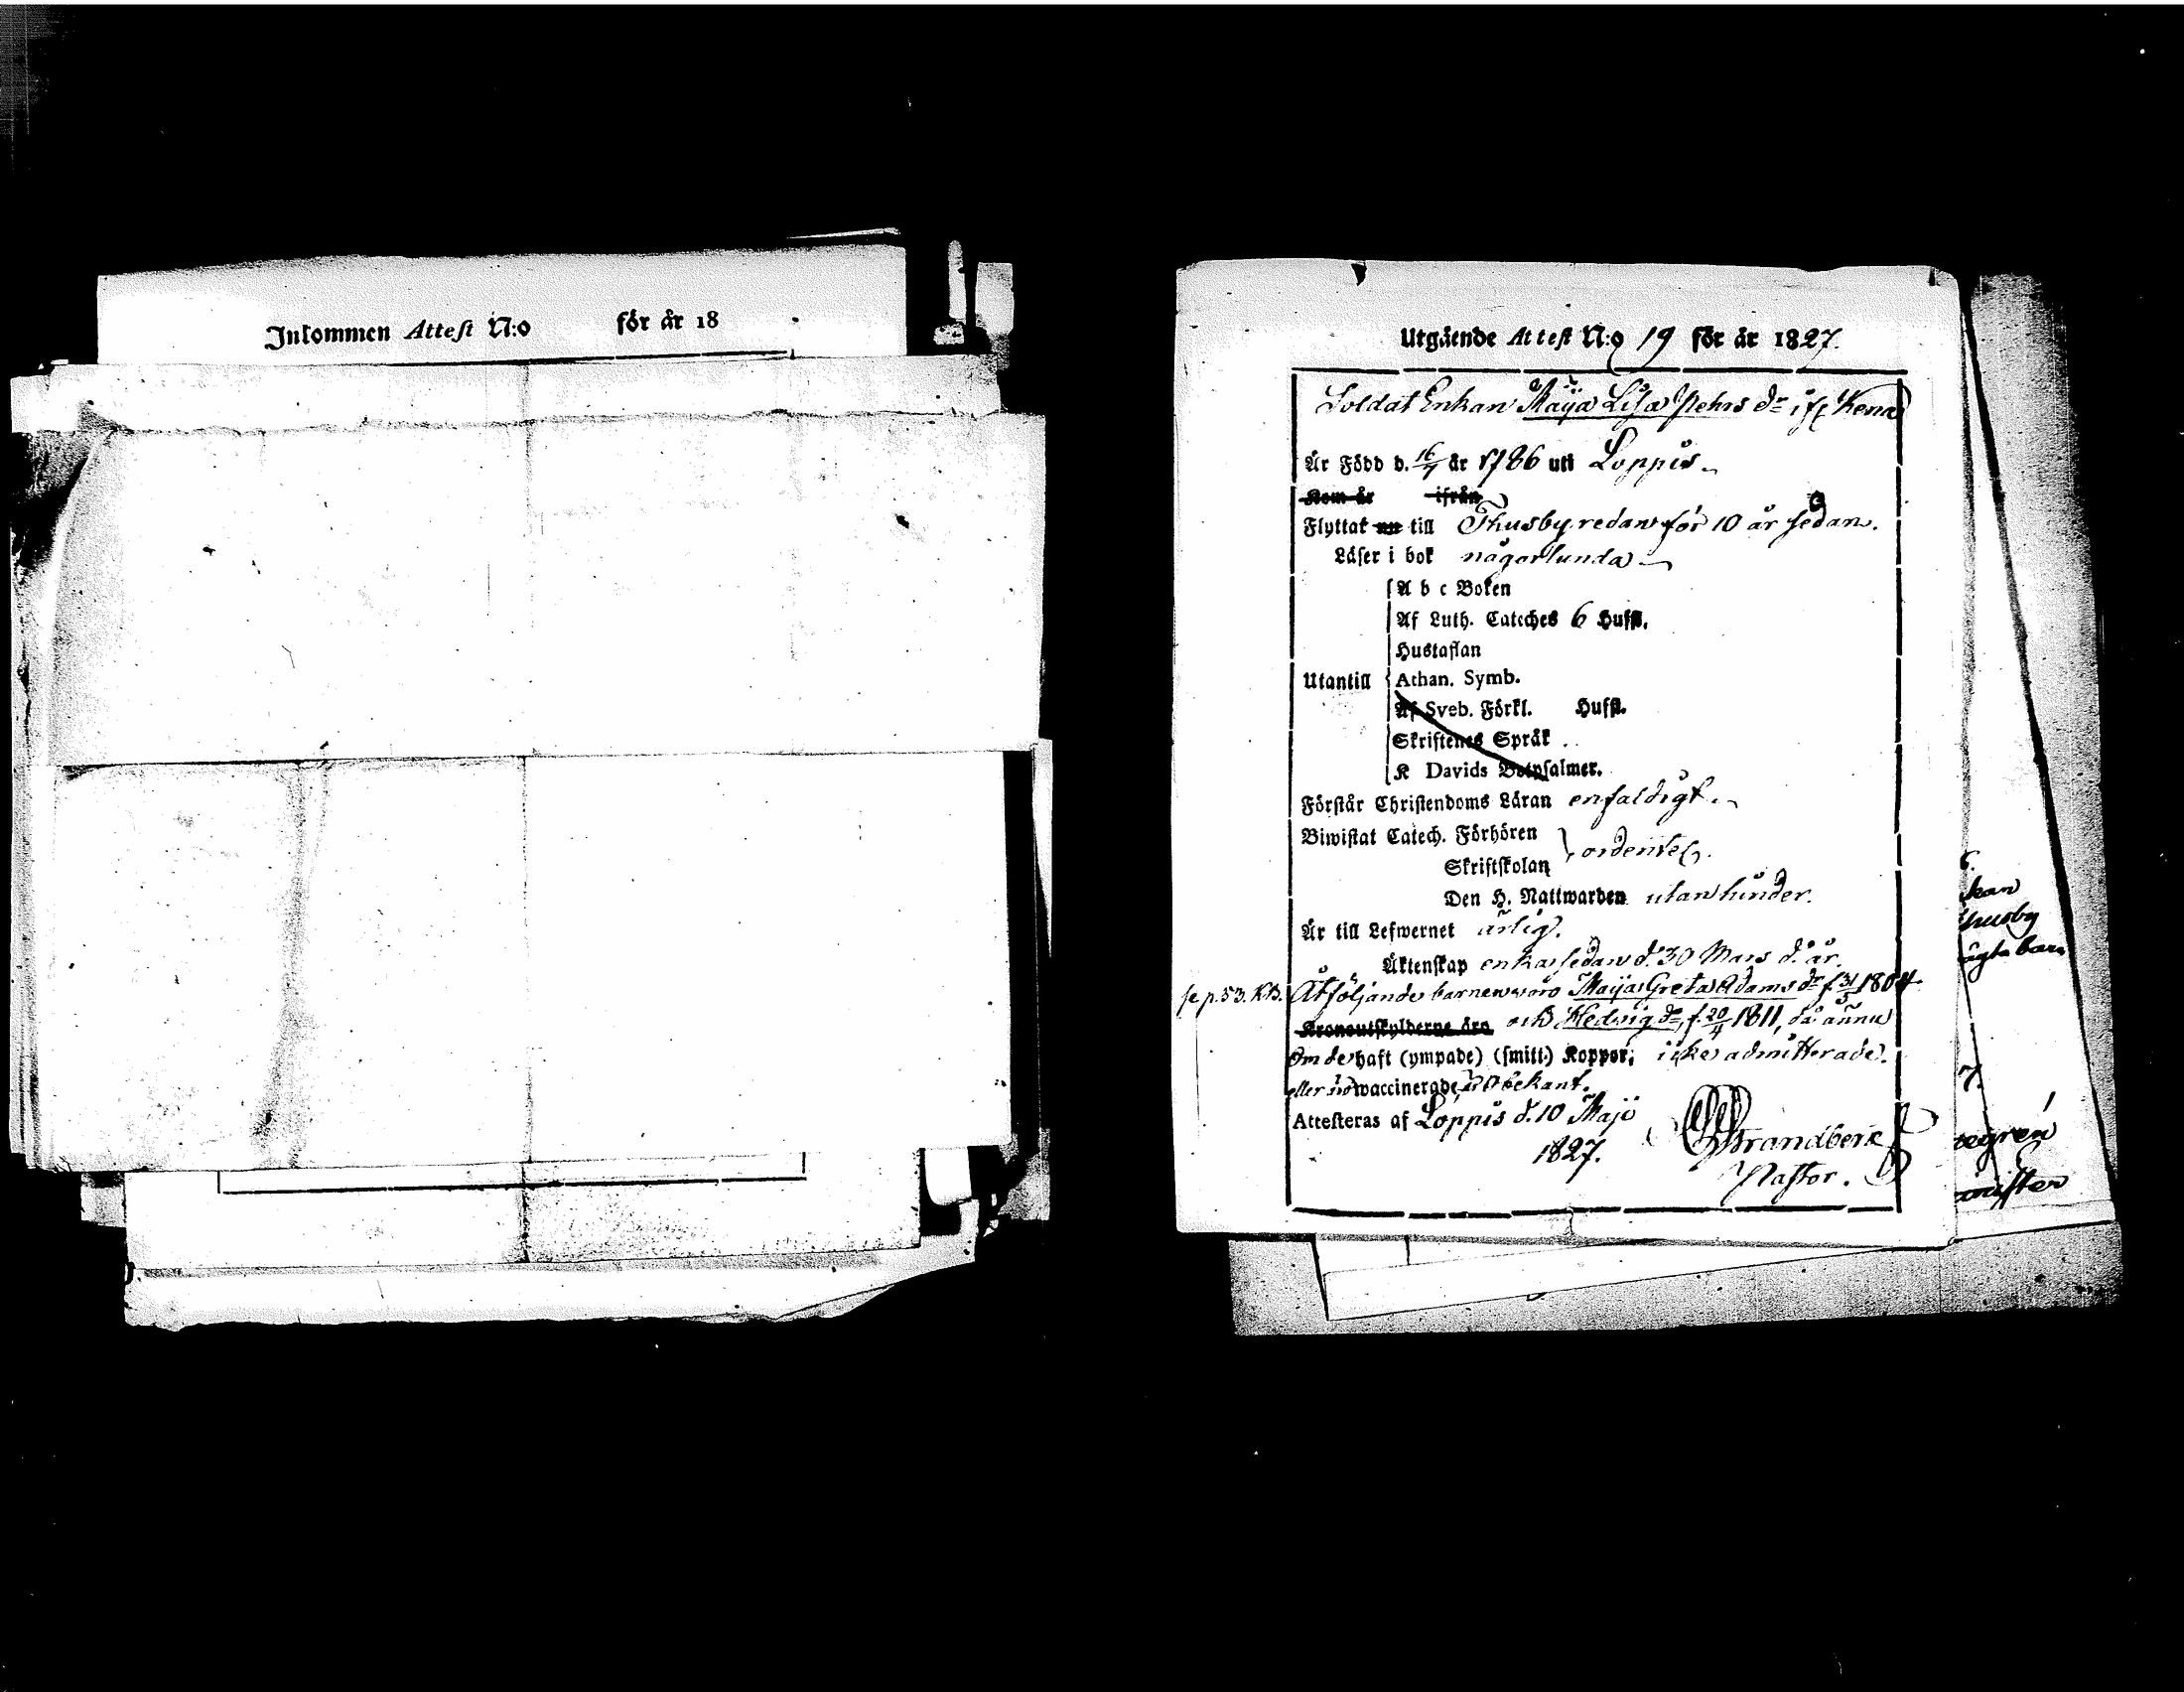 Inkommen Attest N:o för år 18
Utgående Attest N:o 19 för år 1827.
Soldat Enkan Maija Lisa Pehrs dr ifr. Kena
År Född d. 16/1 år 1786 uti Loppis.
Kom år ifrån
Flyttat nu till Thusby redan för 10 år sedan.
Läser i bok någorlunda
A b c Boken
Af Luth. Cateches 6 Hufst.
Hustaflan
Utantill Athan. Symb.
Af Sveb. Förkl. Hufst.
Skriftenes Språk
K Davids Botpsalmer.
Förstår Christendoms Läran enfaldigt.
Biwistat Catech. Förhören
Skriftskolan
Den H. Nattwarden utan hinder.
Är till Lefwernet ärlig.
Äktenskap enka sedan d. 30 Mars d. år.
se p. 53. KB. Åtföljande barnen äro Maija Greta Adams dr f. 31/5 1804
Kronoutskylderne äro och Hedvig dr f. 20/11 1811, då ännu
Om de haft (ympade) (smitt.) Koppor, icke admitterade.
eller äro waccinerade är obekant.
Attesteras af Loppis d. 10 Maji
1827. Strandberg
Pastor.
kan
husby
7.